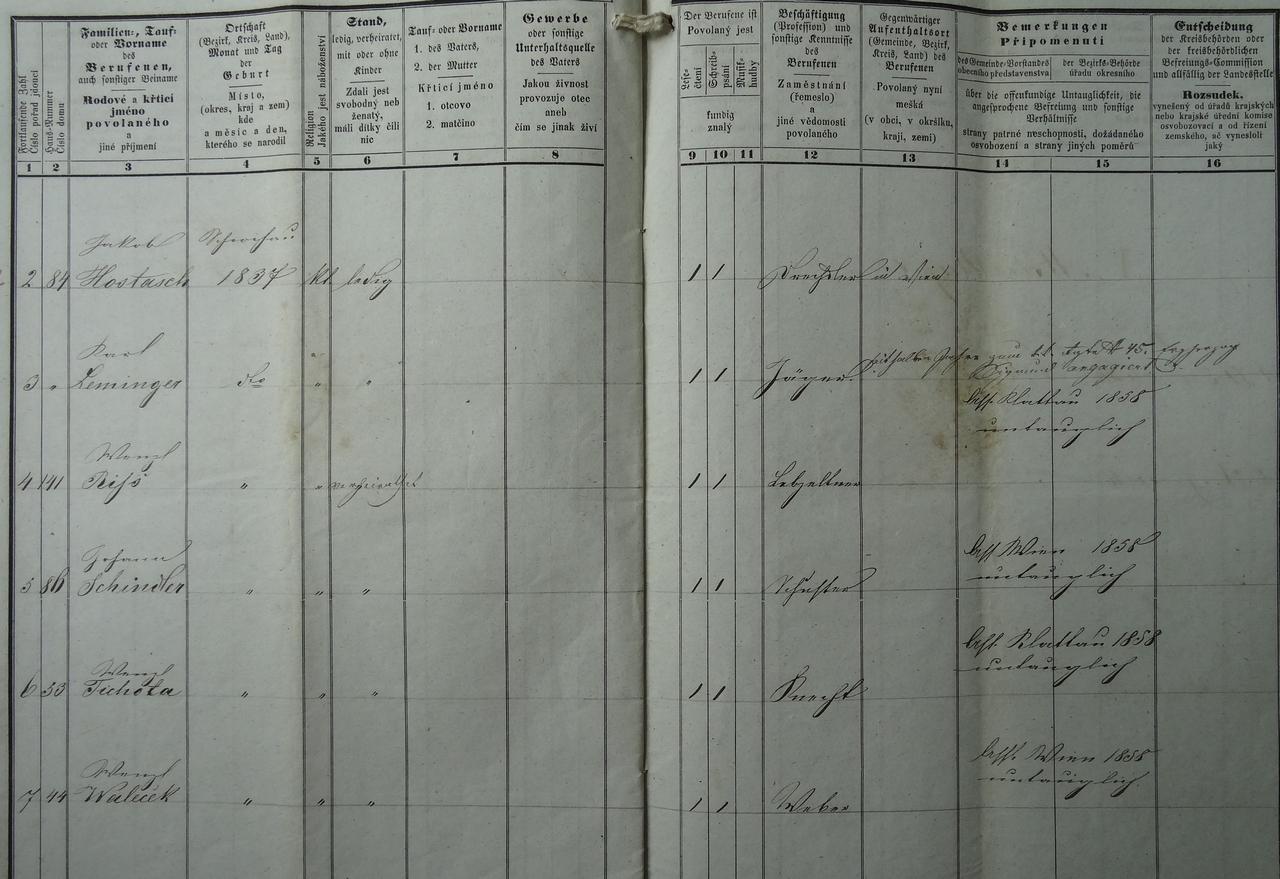 Fortlaufende Zahl
Číslo pořad jdoucí
Haus-Nummer
Číslo domu
Familien-, Tauf-
oder Vorname
des
Berufenen,
auch sonstiger Beiname
Rodové a křticí
jméno
povolaného
a
jiné příjmení
Ortschaft
(Bezirk, Kreis, Land),
Monat und Tag
der
Geburt
Místo,
(okres, kraj a zem)
kde
a měsíc a den,
kterého se narodil
Religion
Jakého jest náboženství
Stand,
ledig, verheiratet,
mit oder ohne
Kinder
Zdali jest
svobodný neb
ženatý,
máli dítky čili
nic
Tauf- oder Vorname
1. des Vaters,
2. der Mutter
Křticí jméno
1. otcovo
2. matčino
Gewerbe
oder sonstige
Unterhaltsquelle
des Vaters
Jakou živnost
provozuje otec
aneb
čím se jinak živí
Der Berufene ist
Povolaný jest
Lese-
čtení
Schreib-
psání
Musik-
hudby
kundig
znalý
Beschäftigung
(Profession) und
sonstige Kenntnisse
des
Berufenen
Zaměstnání
(řemeslo)
a
jiné vědomosti
povolaného
Gegenwärtiger
Aufenthaltsort
(Gemeinde, Bezirk,
Kreis, Land) des
Berufenen
Povolaný nyní
meškà
a
(v obci, v okršlku,
kraji, zemi)
Bemerkungen
Připomenutí
des Gemeinde-Vorstandes
obecního představenstva
der Bezirks-Behörde
úřadu okresního
über die offenkundige Untauglichkeit, die
angesprochene Befreiung und sonstige
Verhältnisse
strany patrné neschopnosti, dožádaného
osvobození a strany jiných poměrů
Entscheidung
der Kreisbehörden oder
der kreisbehördlichen
Befreiungs-Commission
und allfällig der Landesstelle
Rozsudek.
vynešený od úřadů krajských
nebo krajské úřední komise
osvobozovací a od řízení
zemského, ač vynesloli
jaký
1 2 3 4 5 6 7 8 9 10 11 12 13 14 15 16
Jakob
2 84 Hostasch 1837 kt ledig 1 1 Drechsler in Wien
Karl
3 " Leminger dto " " 1 1 Jäger
Sigmund engagiert
Ass. Klattau 1858
untauglich
Wenzl
4 141 Riss " " verheirathet 1 1 Lebzeltner
Johann
5 86 Schindler " " " 1 1 Schuster
Ass. Wien 1858
untauglich
Wenzl
6 53 Tichota " " " 1 1 Knecht
Ass. Klattau 1858
untauglich
Wenzl
7 44 Waleček " " " 1 1 Weber
Ass. Wien 1858
untauglich